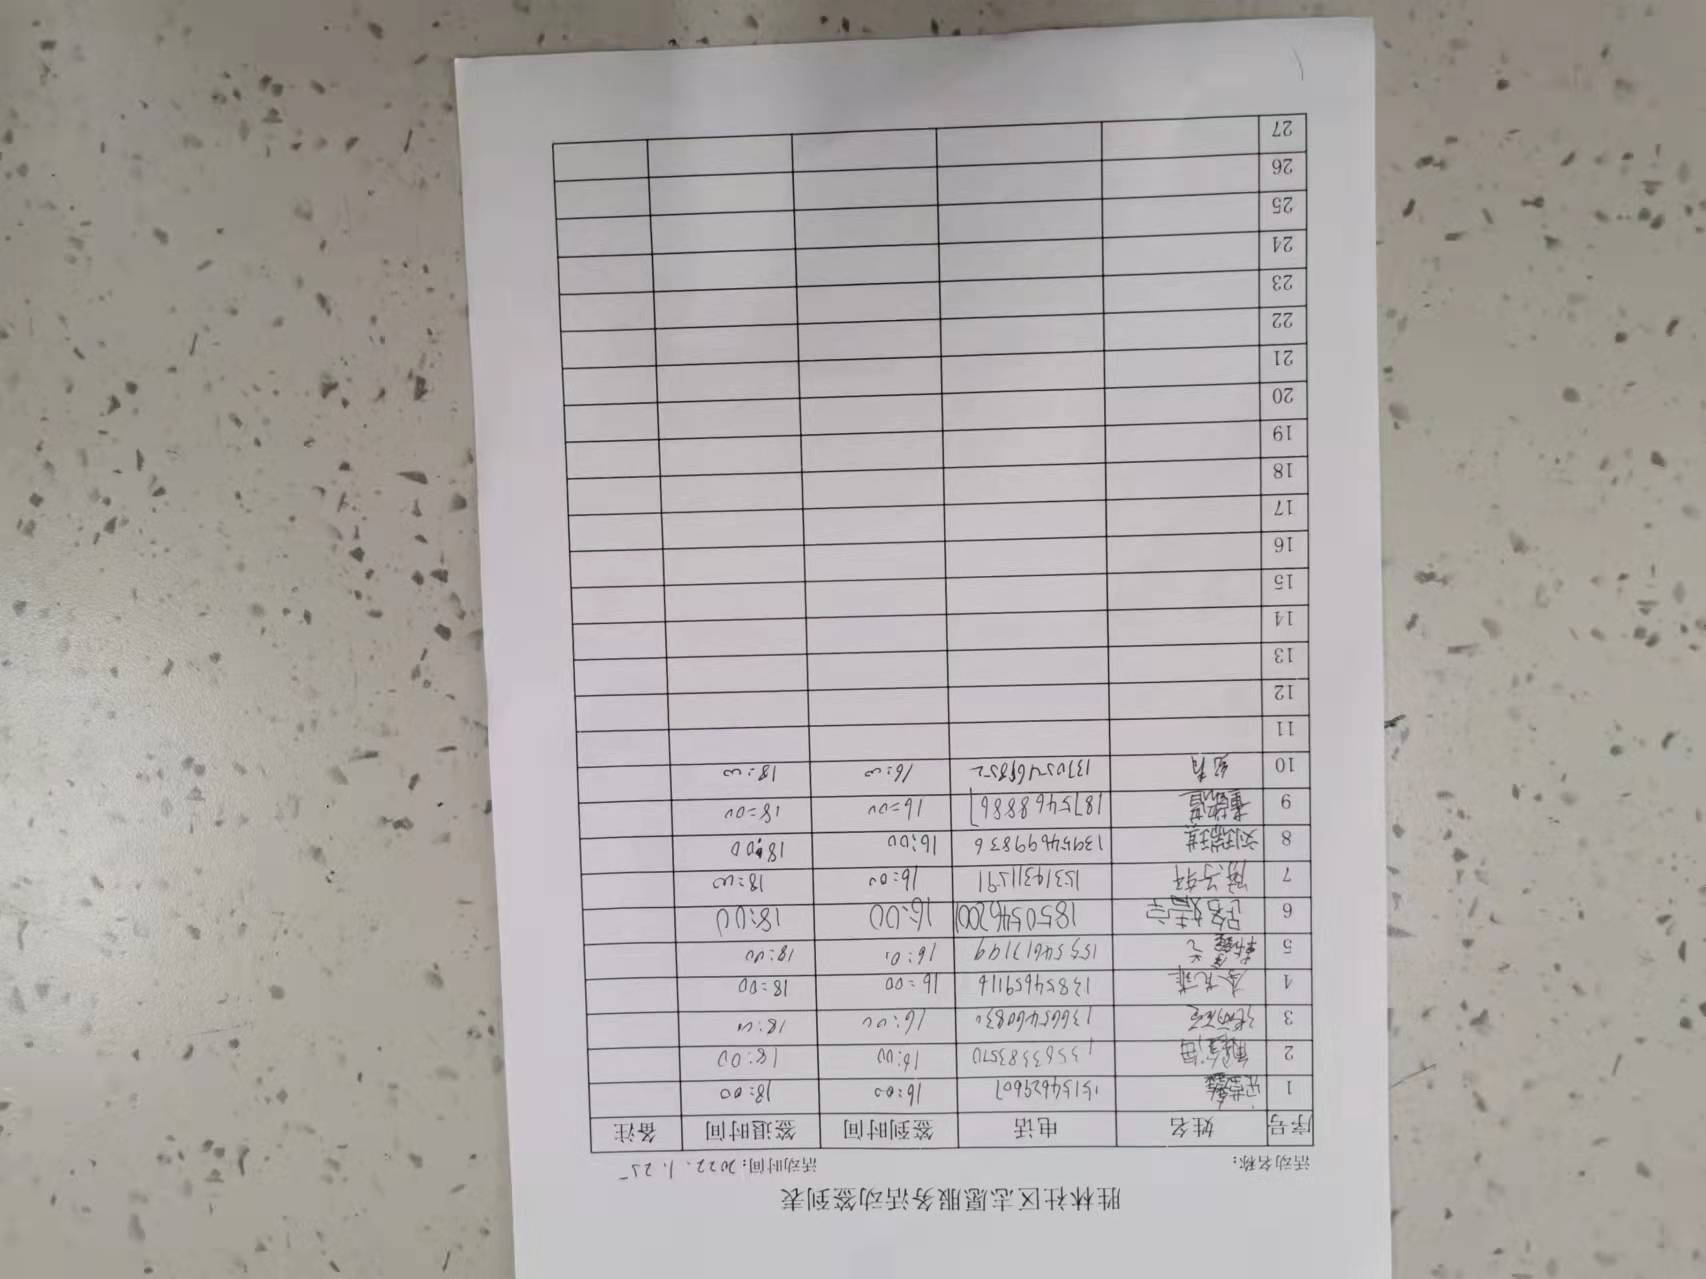 胜林社区志愿服务活动签到表
活动名称: 活动时间: 2022.1.25
序号 姓名 电话 签到时间 签退时间 备注
1 15154629607 16:00 18:00
2 13563383570 16:00 18:00
3 16:00 18:00
4 13854659116 16:00 18:00
5 15554617199 16:01 18:00
6 18505462001 16:00 18:00
7 15314311291 16:00 18:00
8 刘瑞琪 13954699836 16:00 18:00
9 18754688867 16:00 18:00
10 13705468852 16:00 18:00
11
12
13
14
15
16
17
18
19
20
21
22
23
24
25
26
27